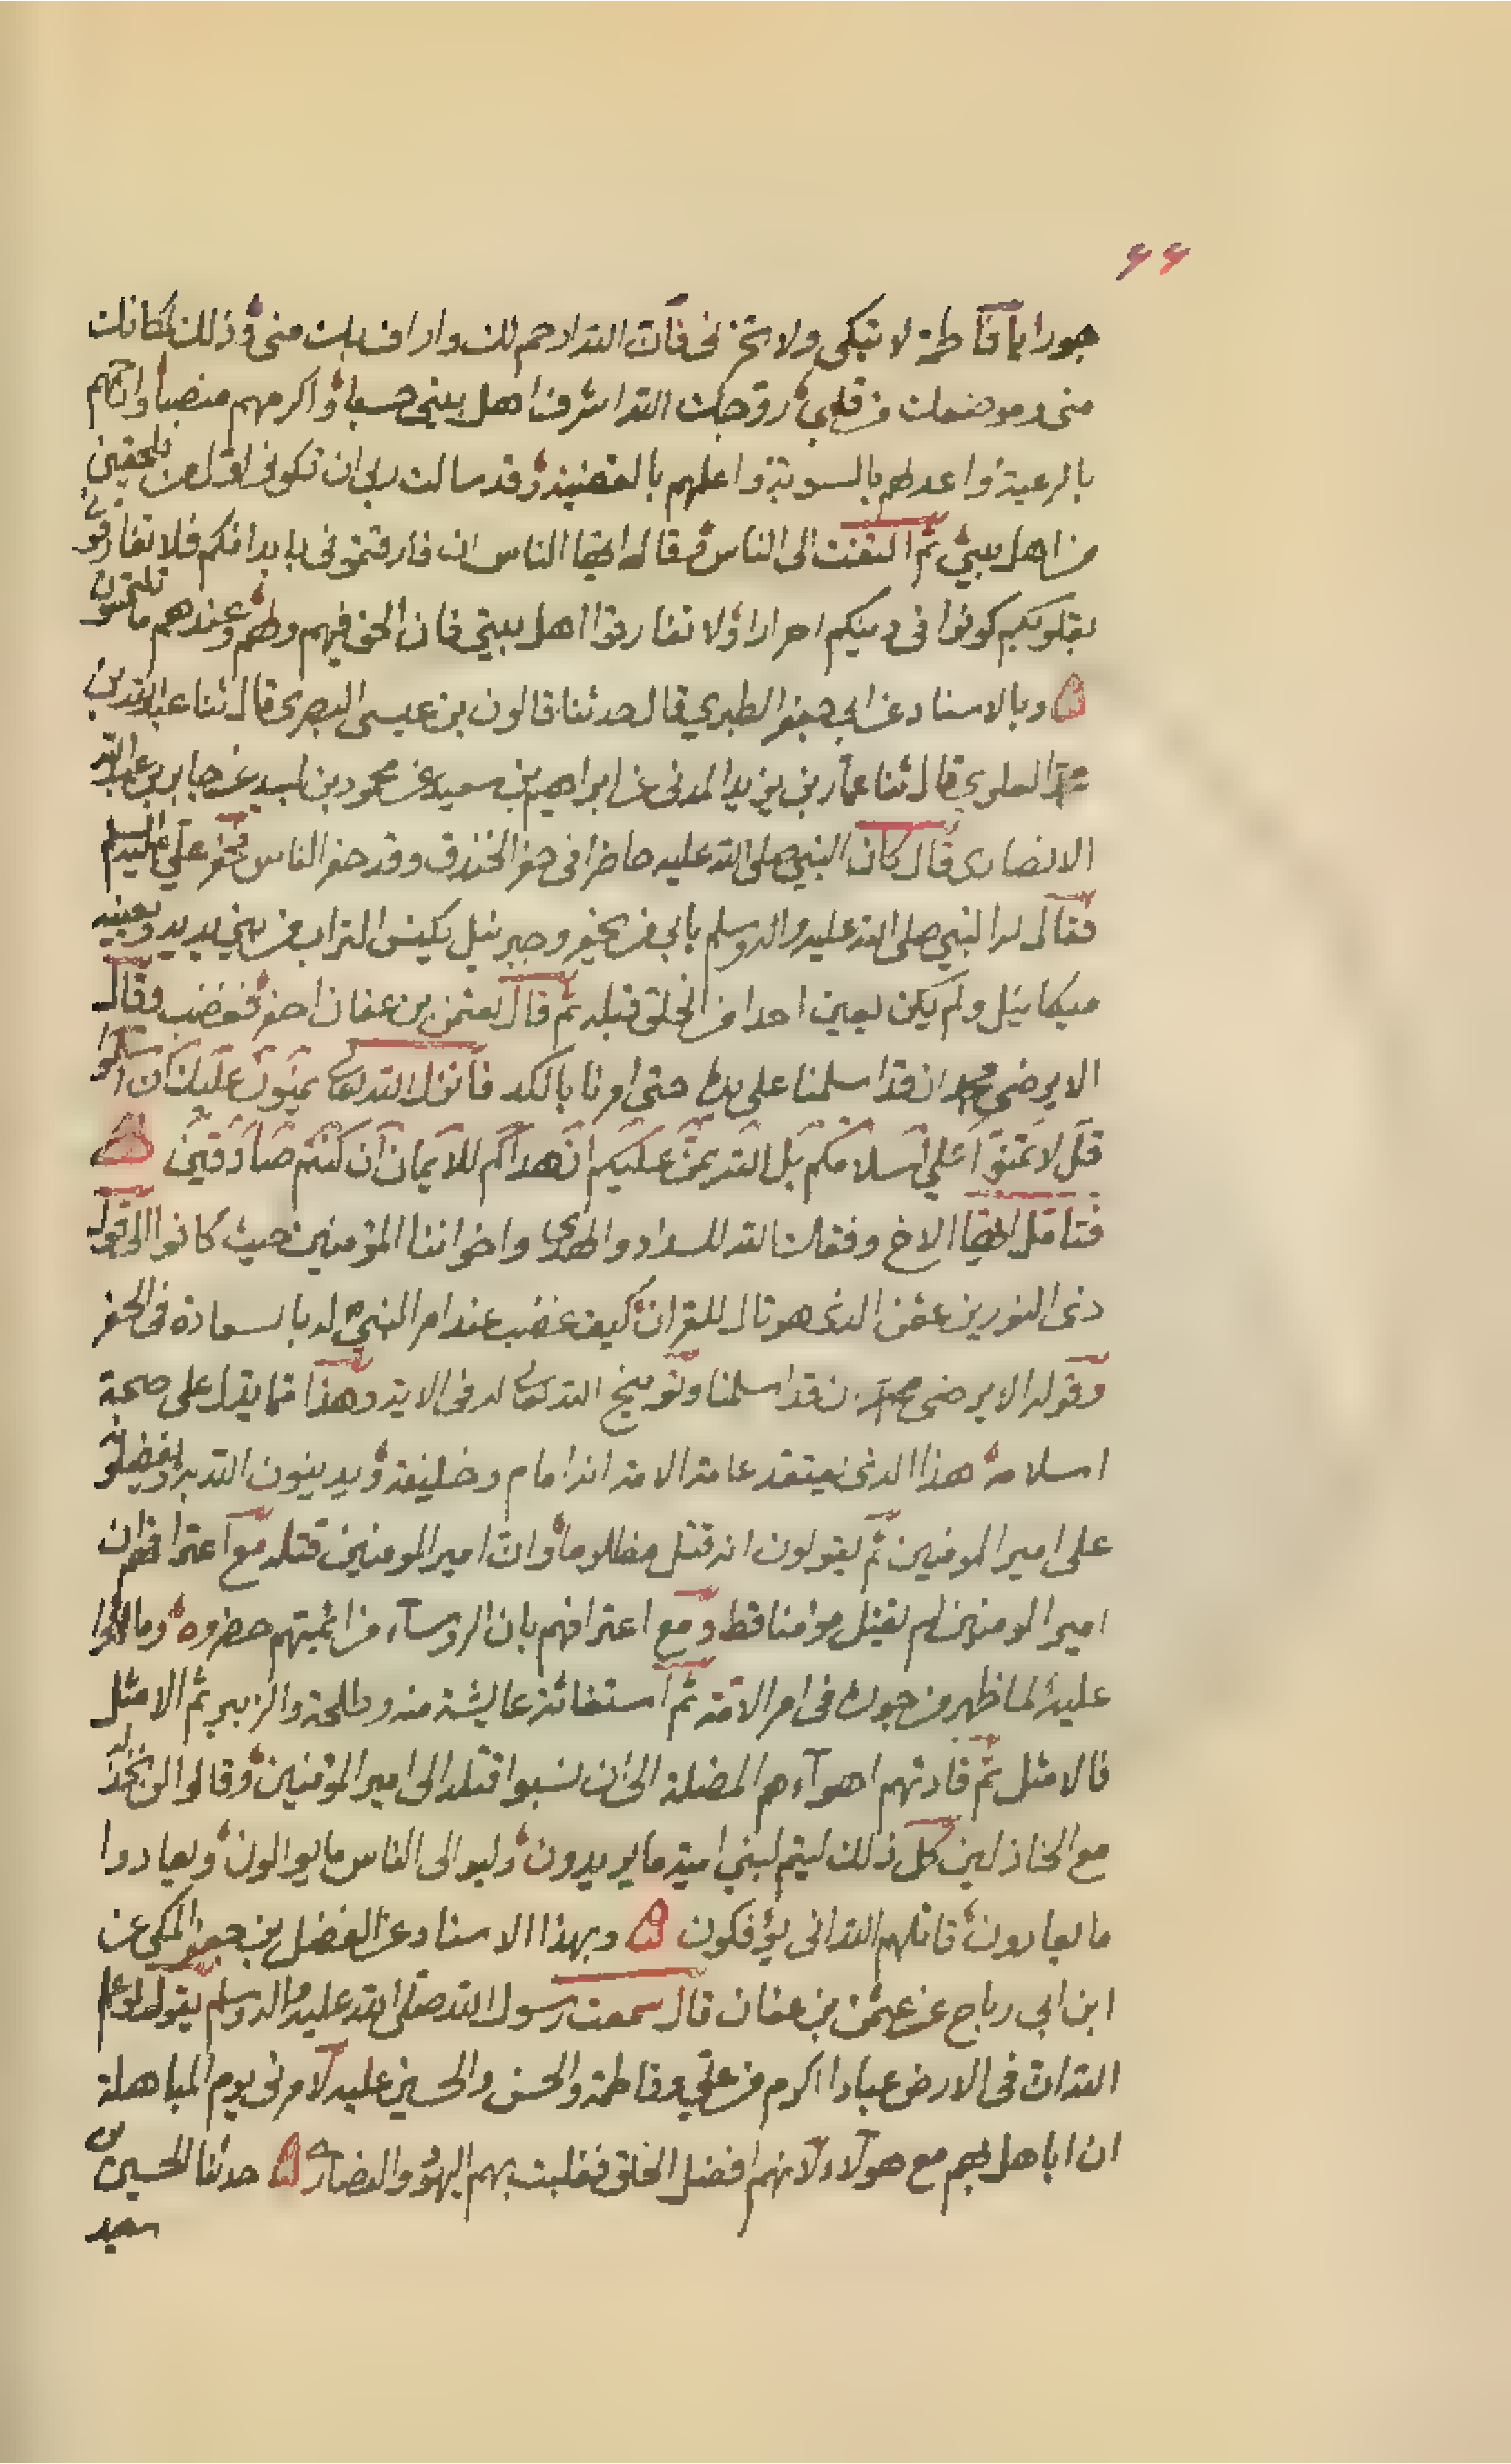 ٤٤
جورا يا فاطمة لا تبكي ولا تحزني فان الله ارحم لك وارأف بك مني وذلك لمكانك
مني وموضعك من قلبي زوجك الله اشرف اهل بيتي حسبا واكرمهم منصبا وارحمهم
بالرعية واعدلهم بالسوية واعلمهم بالقضية وقد سالت ربي ان تكوني اول من تلحقني
من اهل بيتي ثم التفت الى الناس فقال ايها الناس ان فارقتموني بابدانكم فلا تفارقوني
بقلوبكم كونوا في دينكم احرارا ولا تفارقوا اهل بيتي فان الحق فيهم ولهم وعندهم ما تلتمسون
وبالاسناد عن ابي جعفر الطبري قال حدثنا قالون بن عيسى البصري قال ثنا عبد الله بن
محمد العلوي قال ثنا عمار بن يزيد المدني عن ابراهيم بن سعيد عن محمود بن لبيد عن جابر بن عبد الله
الانصاري قال كان النبي صلى الله عليه حاضرا في حفر الخندق وقد حفر الناس وحفر علي عليه السلم
فقال له النبي صلى الله عليه واله وسلم بابي من يحفر وجبرئيل يكنس التراب من بين يديه ويعينه
ميكائيل ولم يكن يعين احدا من الخلق قبله ثم قال لعثمن بن عفان احفر فغضب وقال
الا يرضى محمد ان قد اسلمنا على يده حتى امرنا بالكد فانزل الله تعالى يمنون عليك ان اسلموا
قل لا تمنوا علي اسلامكم بل الله يمن عليكم ان هداكم للايمان ان كنتم صادقين
فتامل ايها الاخ وفقك الله للسداد والهدى واخواننا المؤمنين حيث كانوا الى قول
ذي النورين عثمن الذي هو تال للقران كيف غضب عند امر النبي له بالسعادة في الحفر
وقوله الا يرضى محمد ان قد اسلمنا وتوبيخ الله تعالى له في الاية وهذا مما يدل على صحة
اسلامه هذا الذي يعتقد عامة الامة انه امام وخليفة ويدينون الله به ويفضلونه
على امير المومنين ثم يقولون انه قتل مظلوما وان امير المومنين قتله مع اعترافهم ان
امير المومنين لم يقتل مؤمنا قط ومع اعترافهم بان الروساء من ائمتهم حضروه ومالوا
عليه لما ظهر من جوره في امر الامة ثم استغاثة عايشة منه وطلحة والزبير ثم الامثل
فالامثل ثم قادتهم اهواءهم المضلة الى ان نسبوا قتله الى امير المؤمنين وقالوا انه خذله
مع الخاذلين كل ذلك ليتم لبني امية ما يريدون وليوالي الناس ما يوالون ويعادوا
ما يعادون قاتلهم الله انى يؤفكون وبهذا الاسناد عن الفضل بن جعفر المكي عن
ابن ابي رباح عن عثمن بن عفان قال سمعت رسول الله صلى الله عليه واله وسلم يقول لو علم
الله ان في الارض عبادا اكرم من علي وفاطمة والحسن والحسين عليه لامرني يوم المباهلة
ان اباهل بهم مع هولاء لانهم افضل الخلق فغلبت بهم اليهود والنصارى حدثنا الحسين بن
سعيد